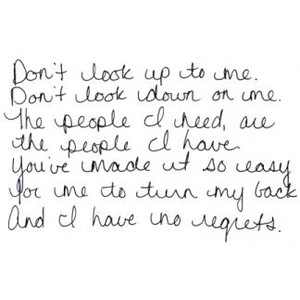 Don't look up to me.
Don't look down on me.
The people I need, are
the people I have.
You've made it so easy
for me to turn my back
And I have no regrets.